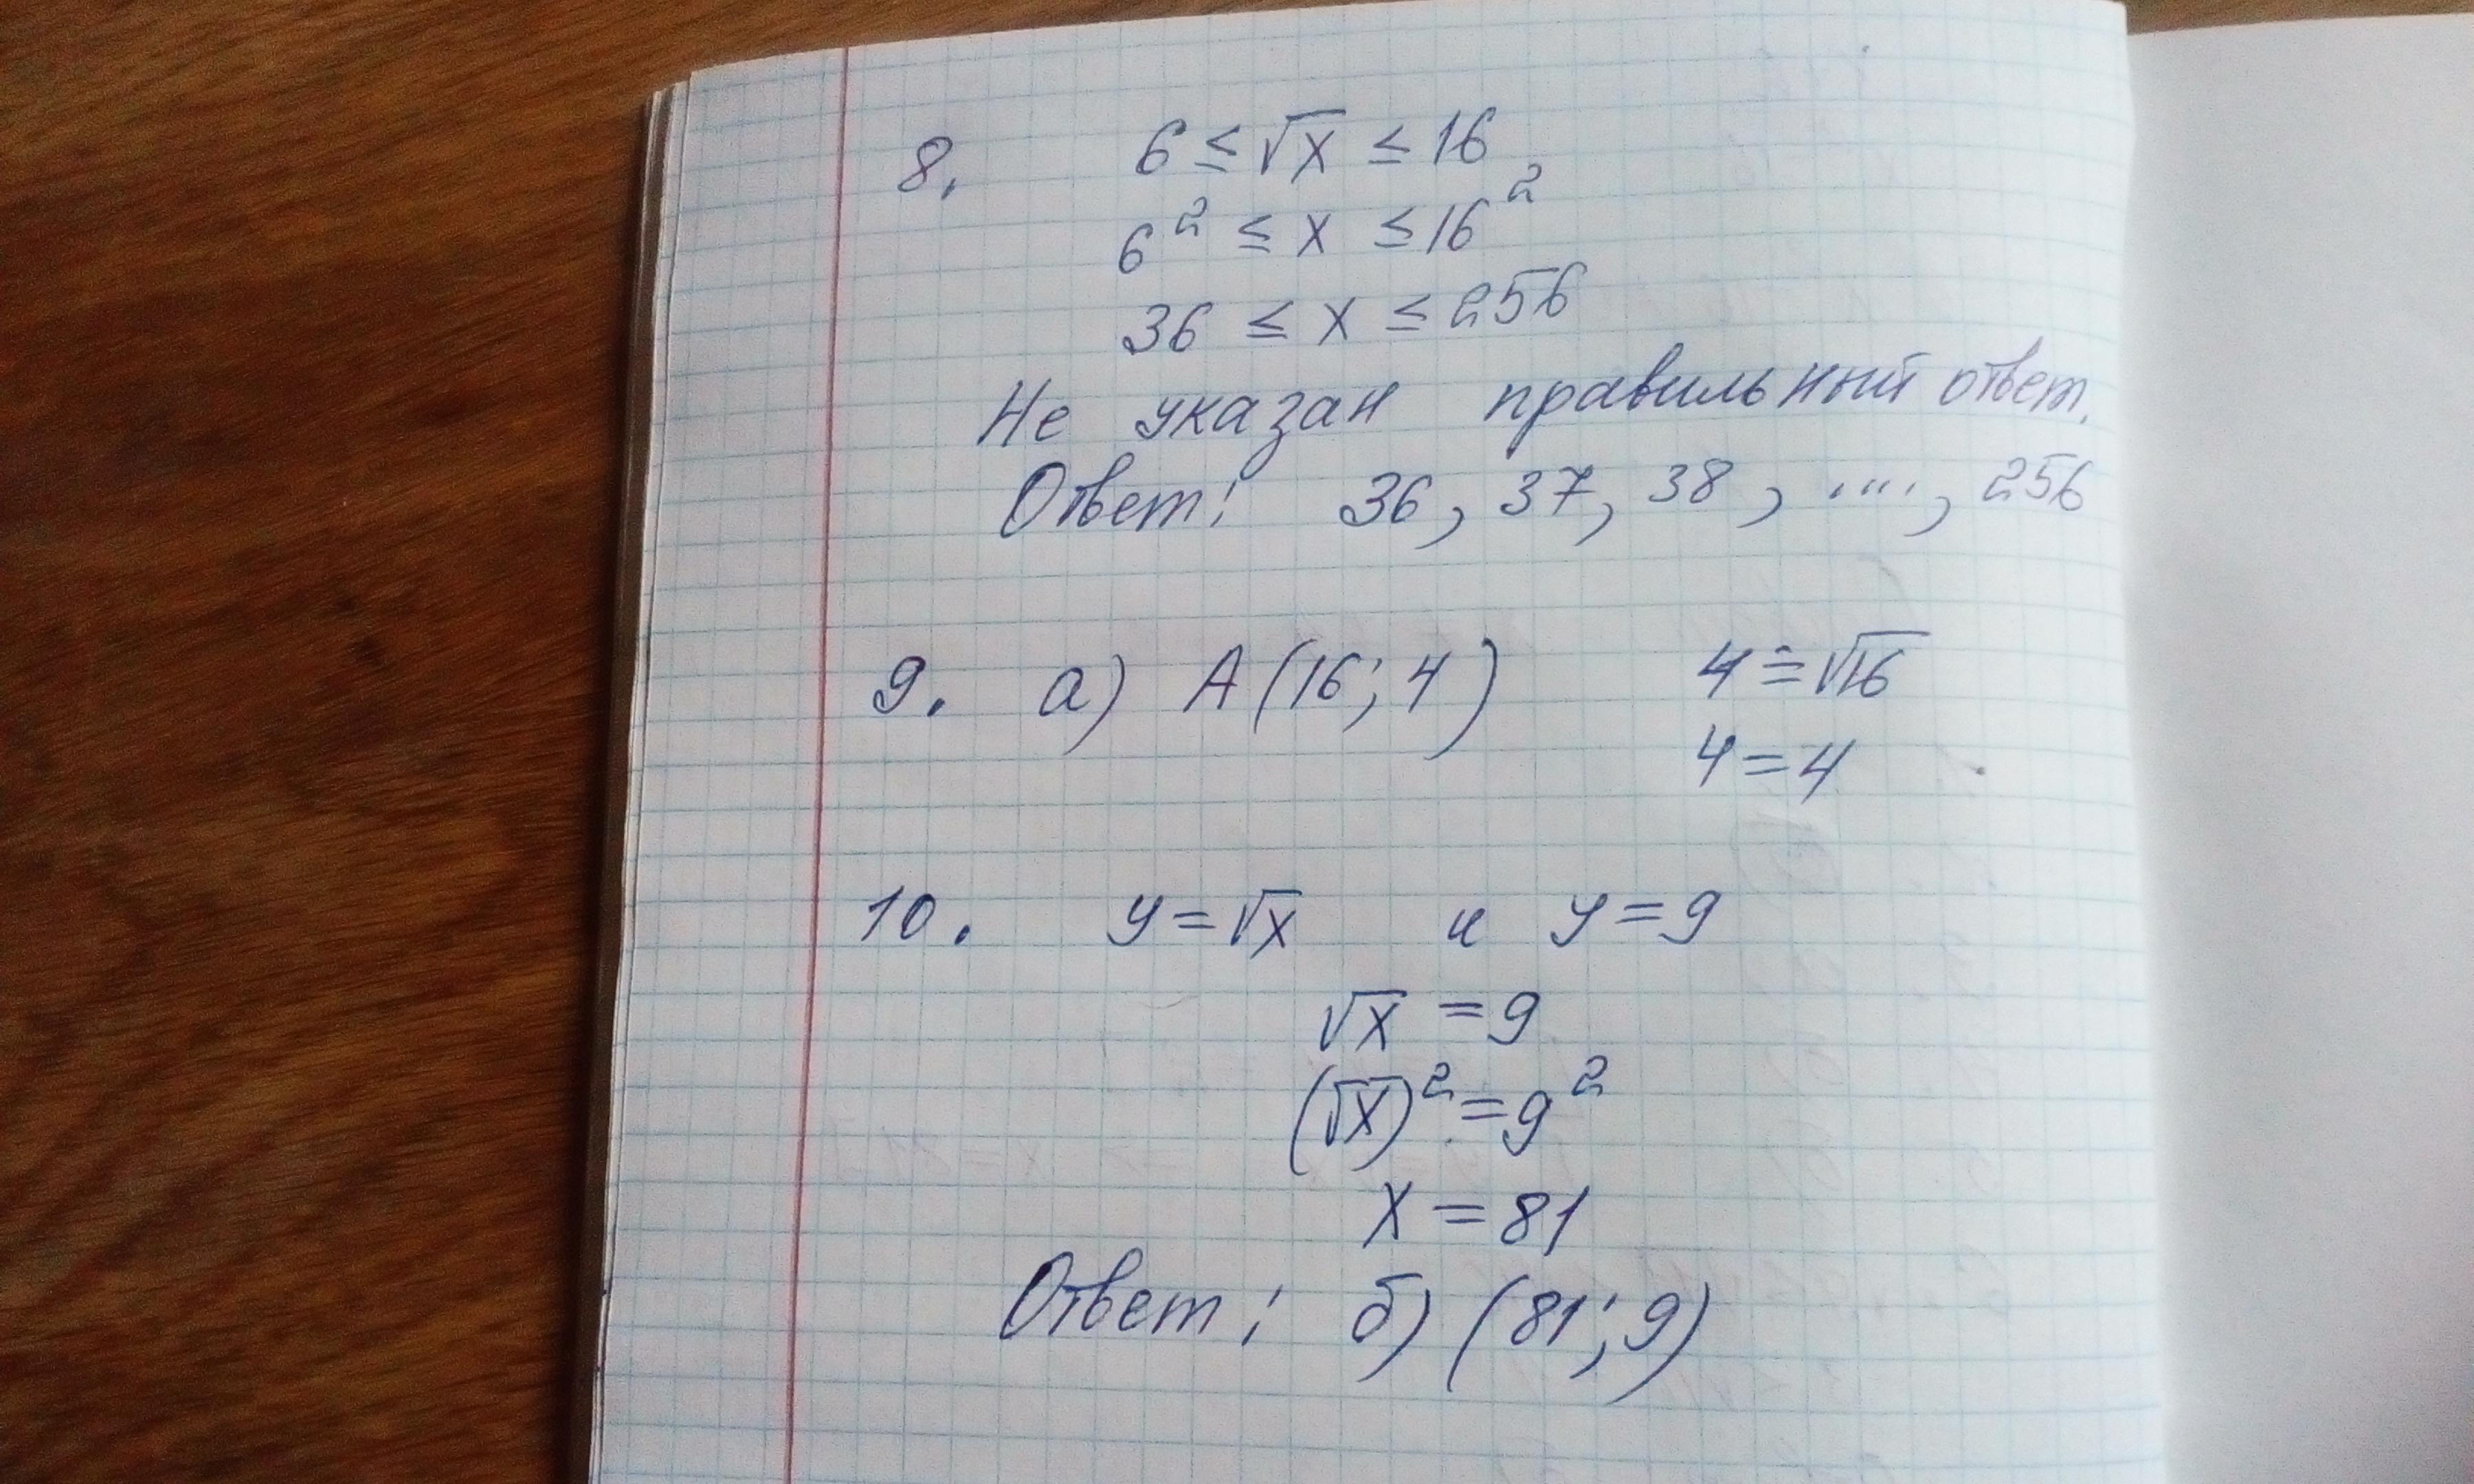 8. 6 ≤ √x ≤ 16
6² ≤ x ≤ 16²
36 ≤ x ≤ 256
Не указан правильный ответ.
Ответ: 36, 37, 38, ...., 256
9. а) A(16; 4) 4 = √16
4 = 4
10. y = √x и y = 9
√x = 9
(√x)² = 9²
x = 81
Ответ: б) (81; 9)